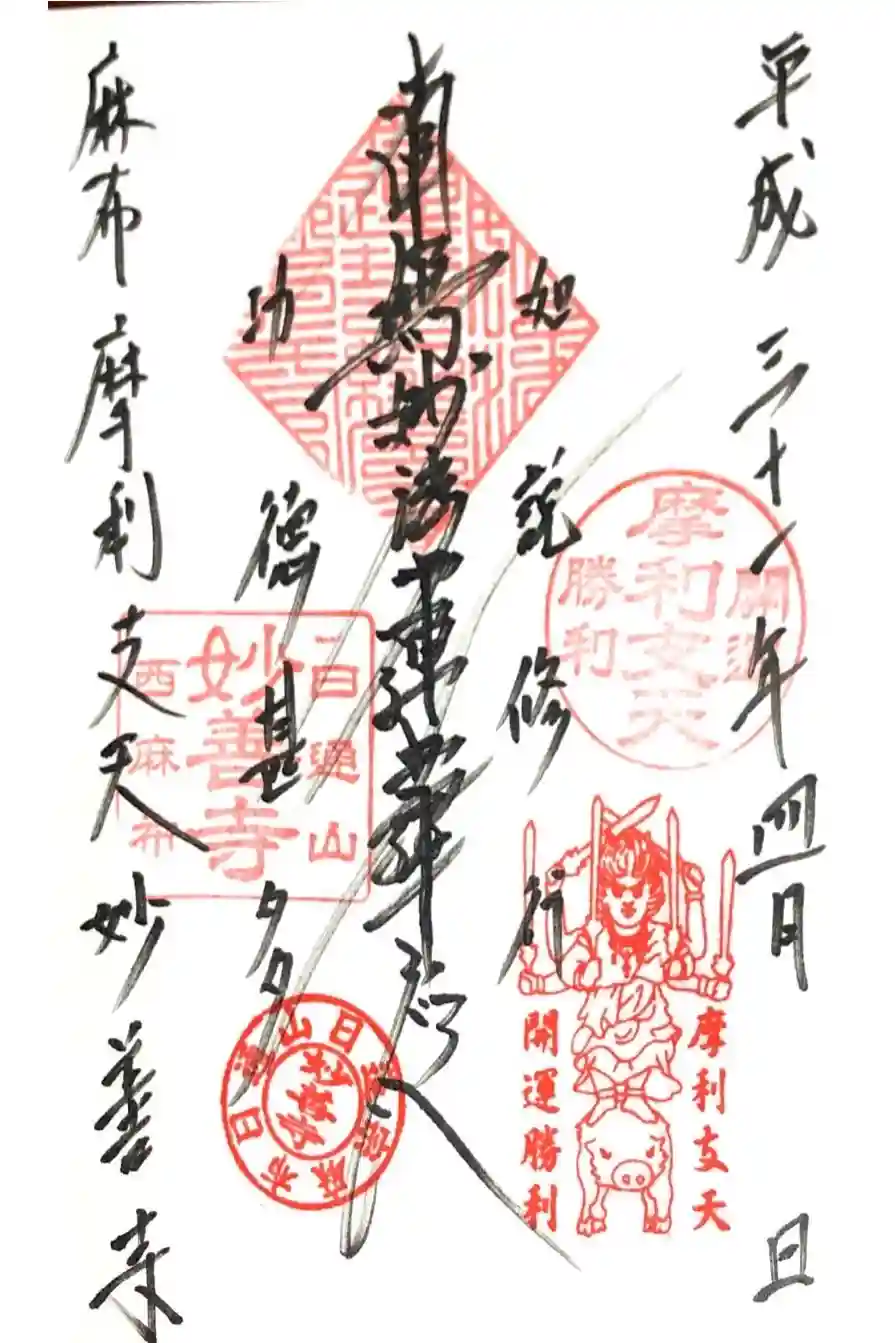 平成三十一年四月 日
如説修行
南無妙法蓮華経
功徳甚多
麻布摩利支天妙善寺
開運
摩利支天
勝利
摩利支天
開運勝利
日通山
妙善寺
西麻布